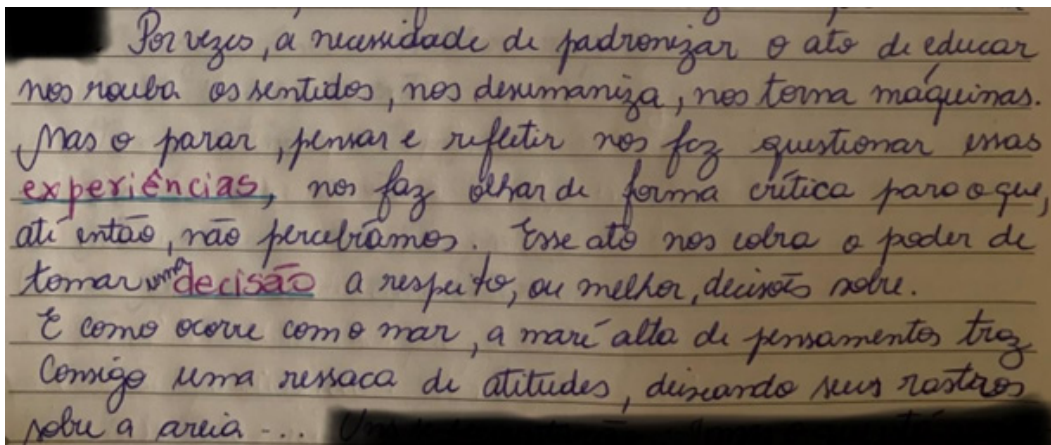 Por vezes, a necessidade de padronizar o ato de educar
nos rouba os sentidos, nos desumaniza, nos torna máquinas.
Mas o parar, pensar e refletir nos faz questionar essas
experiências, nos faz olhar de forma crítica para o que,
até então, não percebíamos. Esse ato nos cobra o poder de
tomar uma decisão a respeito, ou melhor, decisões sobre.
E como ocorre com o mar, a maré alta de pensamentos traz
consigo uma ressaca de atitudes, deixando seus rastros
sobre a areia ....